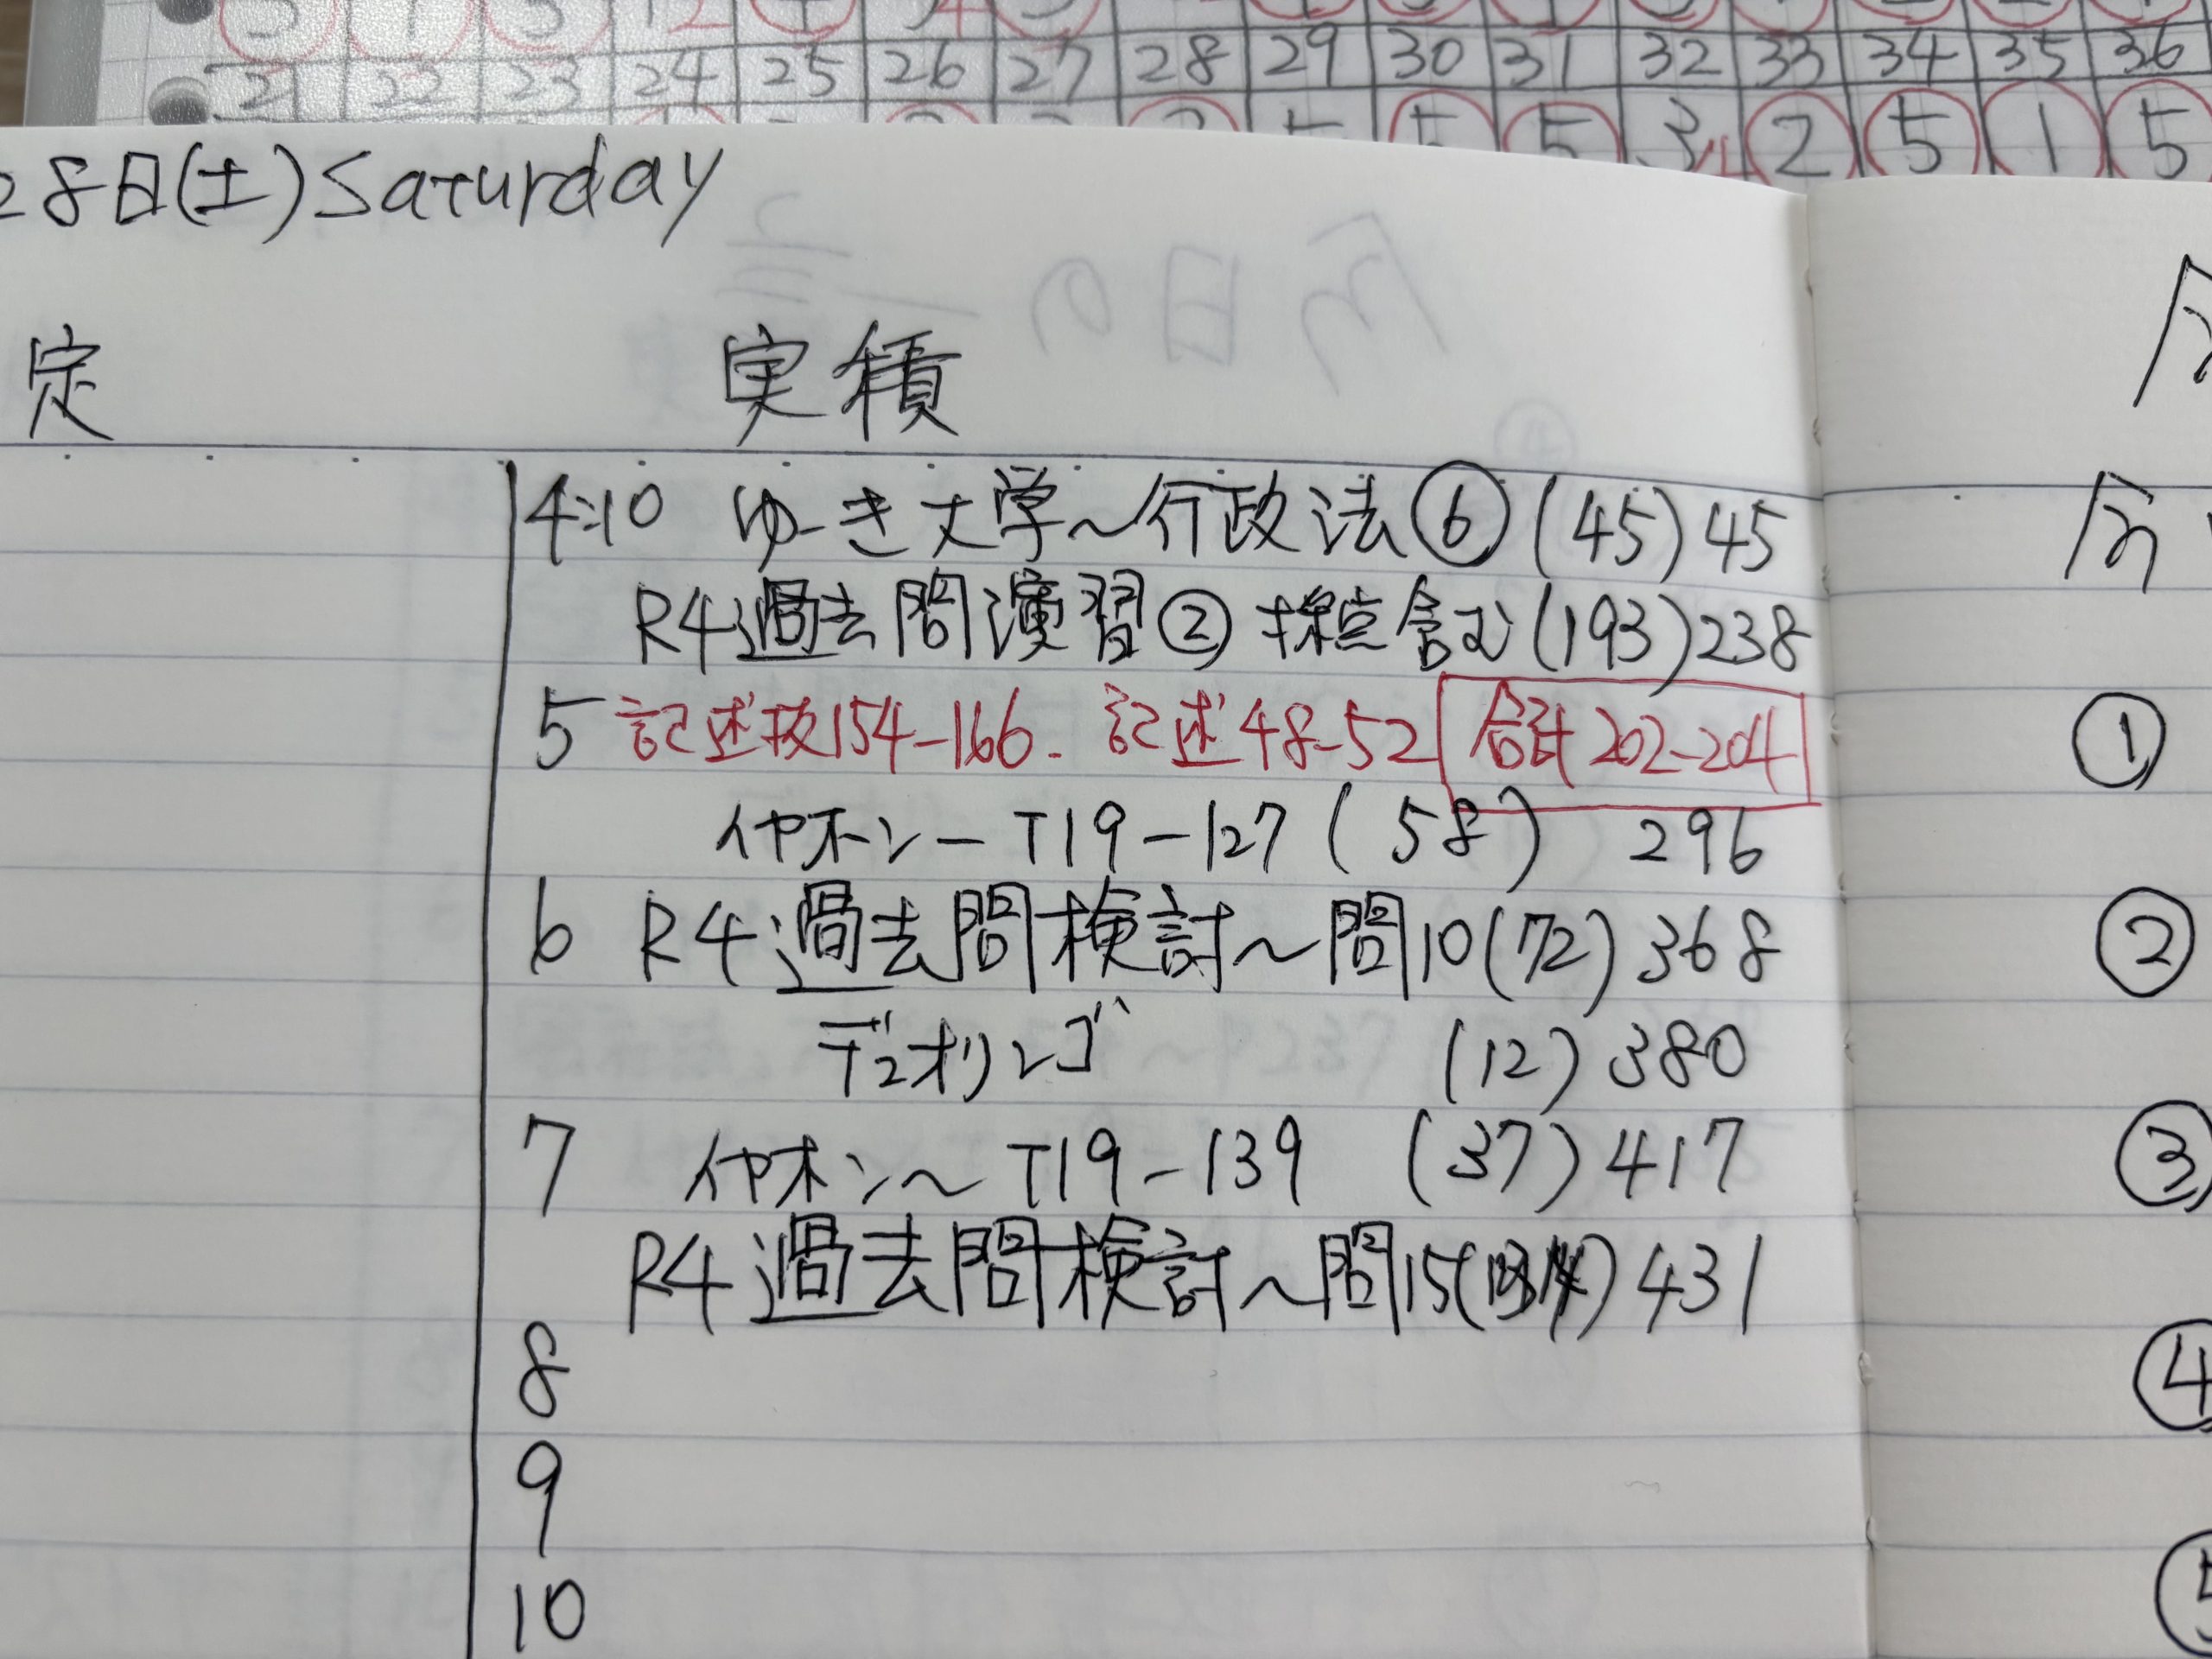 21 22 23 24 25 26 27 28 29 30 31 32 33 34 35 36
5 5 3 4 2 5 1 5
28日(土)Saturday
定 実積
4:10 ゆーき大学〜行政法⑥(45)45
R4過去問演習② 採点含む(193)238
5 記述抜154-166. 記述48-52 合計202-204
イヤホン-T19-127(58) 296
6 R4過去問検討〜問10(72)368
デュオリンゴ (12)380
7 イヤホン〜T19-139 (37)417
R4過去問検討〜問15( )431
8
9
10
①
②
③
④
⑤